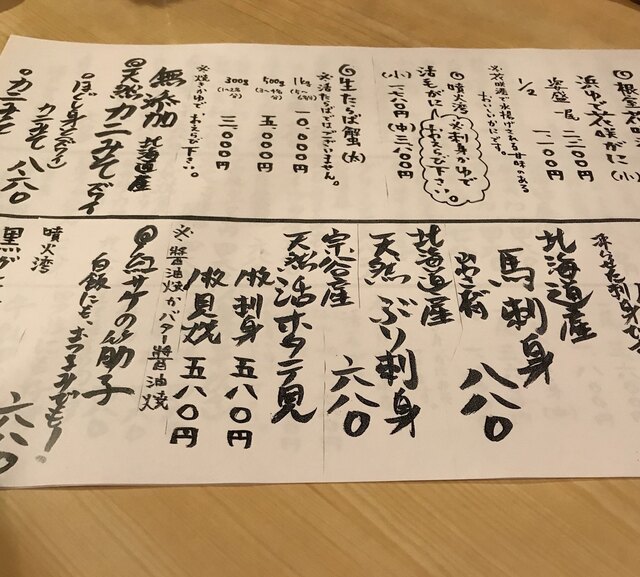 浜ゆで花咲がに(小)
姿盛 一尾 二二〇〇円
1/2 一二〇〇円
◎噴火湾
活毛がに
お刺身かゆで
おえらび下さい。
(中)三六八〇円
◎生たらば蟹(大)
※活たらばではございません。
1kg 一〇、〇〇〇円
500g 五、〇〇〇円
300g 三、〇〇〇円
※焼きかゆで、おえらび下さい。
無添加 北海道産
◎天然カニみそズワイ
ほぐし身(ズワイ)
カニみそ 八六〇
カニみそ
北海道産
馬刺身
八八〇
北海道産
天然 ぶり刺身
六八〇
宗谷産
天然活ホタテ貝
1枚刺身 五八〇円
1枚貝焼 五八〇円
※醤油焼かバター醤油焼
◎紅サケの筋子
白飯にも、おつまみでも!
噴火湾
六八〇